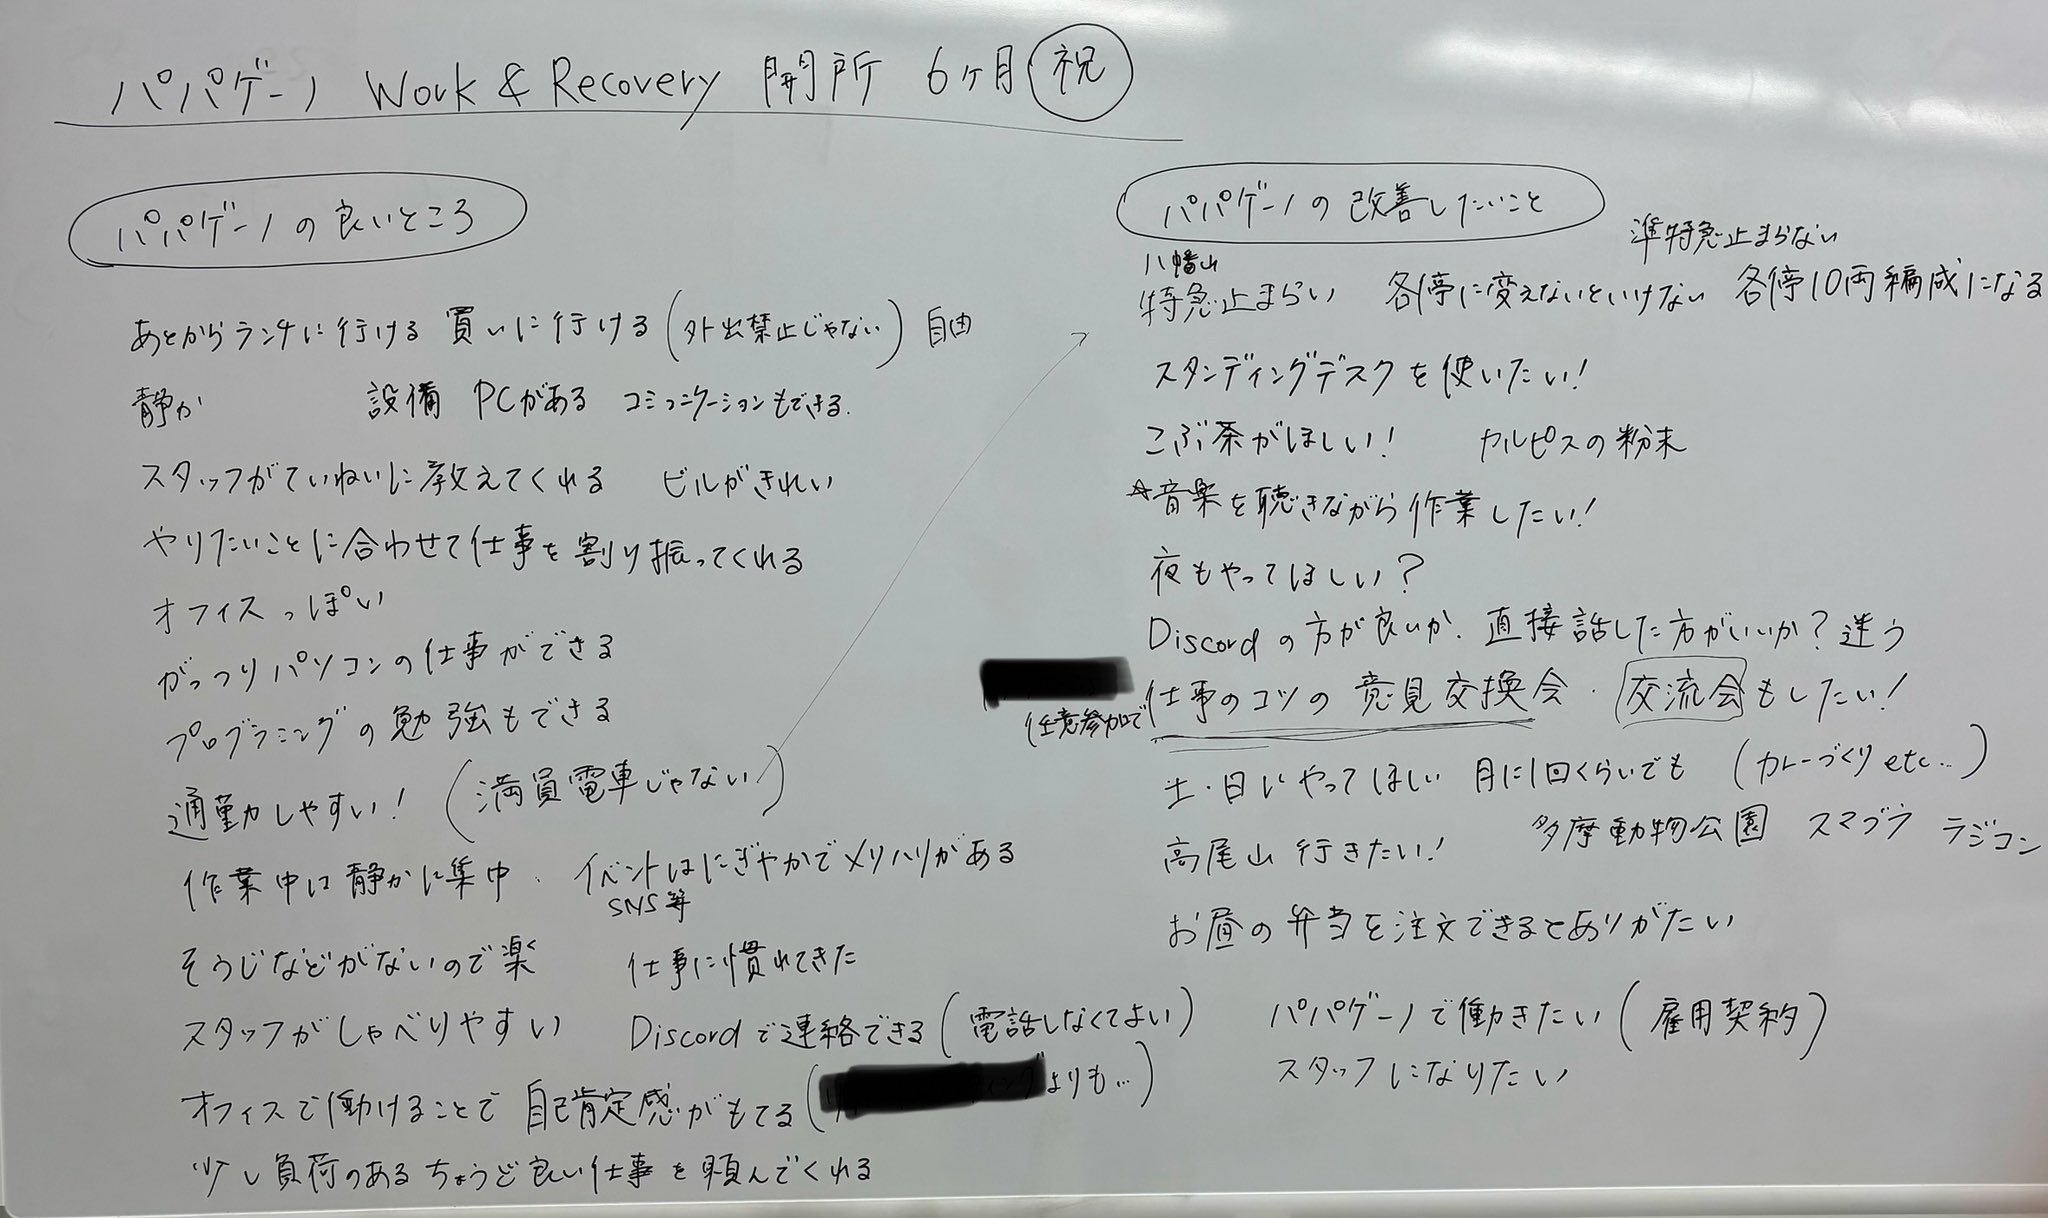 パパゲーノ Work & Recovery 開所 6ヶ月 祝
パパゲーノの良いところ
あとからランチに行ける 買いに行ける (外出禁止じゃない) 自由
静か 設備 PCがある コミュニケーションもできる.
スタッフがていねいに教えてくれる ビルがきれい
やりたいことに合わせて仕事を割り振ってくれる
オフィスっぽい
がっつりパソコンの仕事ができる
プログラミングの勉強もできる
通勤しやすい! (満員電車じゃない)
作業中は静かに集中. イベントはにぎやかでメリハリがある
SNS等
そうじなどがないので楽 仕事に慣れてきた
スタッフがしゃべりやすい Discordで連絡できる (電話しなくてよい)
オフィスで働けることで自己肯定感がもてる ( ングよりも…)
少し負荷のあるちょうど良い仕事を頼んでくれる
パパゲーノの改善したいこと
準特急止まらない
八幡山
特急止まらい 各停に変えないといけない 各停10両編成になる
スタンディングデスクを使いたい!
こぶ茶がほしい! カルピスの粉末
☆音楽を聴きながら作業したい!
夜もやってほしい?
Discordの方が良いか. 直接話した方がいいか? 迷う
仕事のコツの意見交換会・交流会もしたい!
任意参加で
土・日にやってほしい 月に1回くらいでも (カレーづくり etc…)
高尾山行きたい! 多摩動物公園 スマブラ ラジコン
お昼の弁当を注文できるとありがたい
パパゲーノで働きたい (雇用契約)
スタッフになりたい